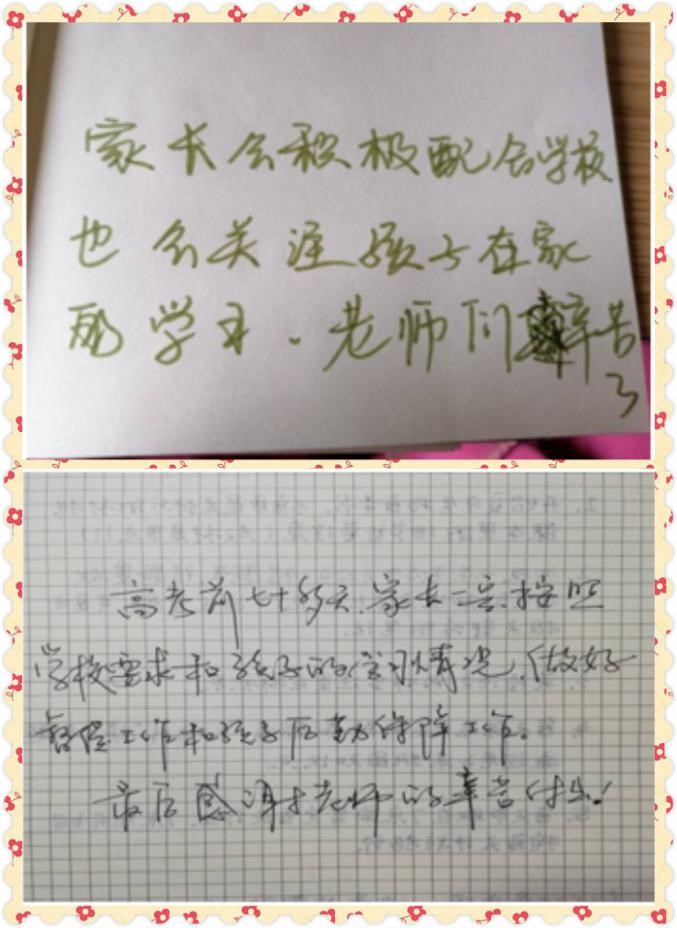 家长会积极配合学校
也会关注孩子在家
的学习.老师们辛苦
了
高考前七十多天,家长一定按照
学校要求和孩子的学习情况,做好
督促工作和孩子后勤保障工作。
最后感谢老师的辛苦付出!